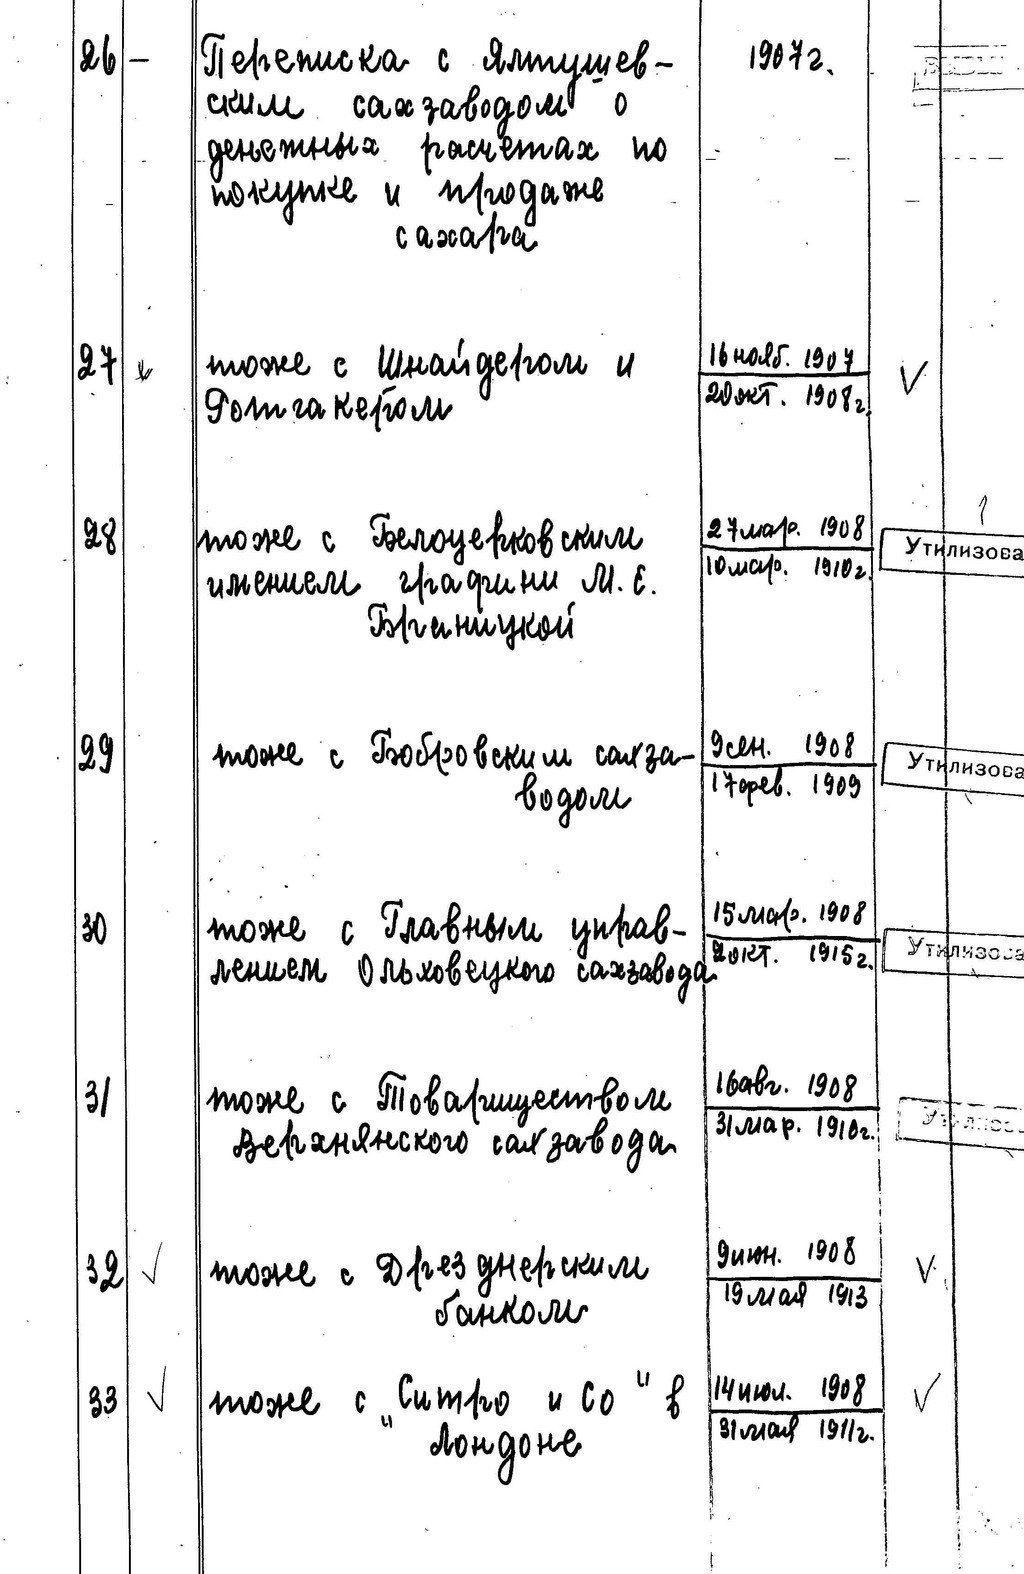 26 — Переписка с Ялтушев- 1907г.
ским сахзаводом о
денежных расчетах по
покупке и продаже
сахара
27 тоже с Шнайдером и 16 нояб. 1907
Ротгакером 20 окт. 1908г. ✓
28 тоже с Белоцерковским 27 мар. 1908 Утилизова
имением графини М. Е. 10 мар. 1910г.
Браницкой
29 тоже с Бобровским сахза- 9 сен. 1908 Утилизова
водом 17 фев. 1909
30 тоже с Главным управ- 15 мар. 1908 Утилизова
лением Ольховецкого сахзавода 2 окт. 1915г.
31 тоже с Товариществом 16 авг. 1908
Верхнянского сахзавода 31 мар. 1910г.
32 ✓ тоже с Дрезднерским 9 июн. 1908 ✓
банком 19 мая 1913
33 ✓ тоже с „Ситро и Со" в 14 июл. 1908 ✓
Лондоне 31 мая 1911г.